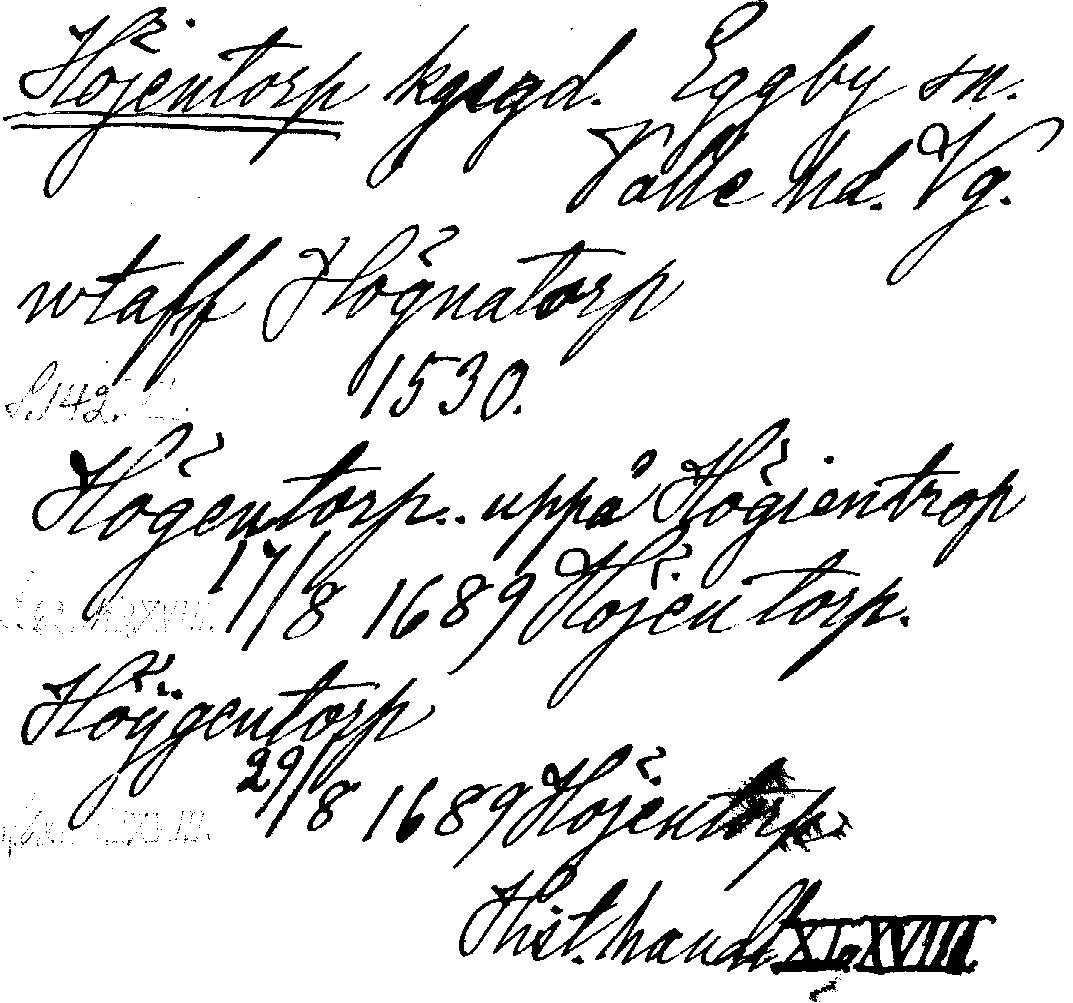 Höjentorp kgsgd. Eggby sn.
Valle hd. Vg.
wtaff Högnatorp
S. 142. 1530.
Högentorp.. uppå Högientrop
17/8 1689 Höjentorp.
Höÿgentorp
29/8 1689 Höjentorp
Hist. handl XI, XVIII.